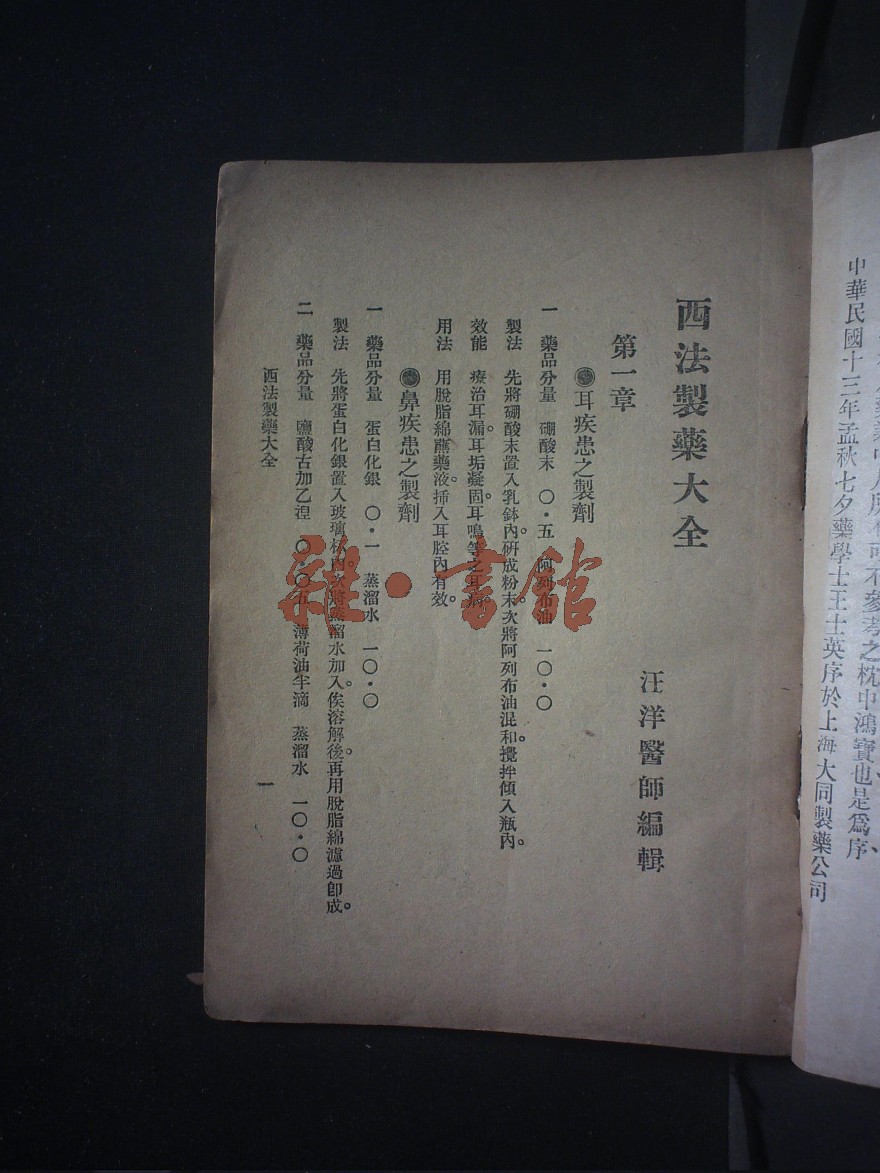 中華民國十三年孟秋七夕藥學士王士英序於上海大同製藥公司
西法製藥大全
汪洋醫師編輯
第一章
耳疾患之製劑
一 藥品分量 硼酸末 〇・五 阿列布油 一〇・〇
製法 先將硼酸末置入乳鉢內。研成粉末。次將阿列布油混和。攪拌傾入瓶內。
效能 療治耳漏。耳垢凝固。耳鳴等之耳病。
用法 用脫脂綿蘸藥液。挿入耳腔內有效。
鼻疾患之製劑
一 藥品分量 蛋白化銀 〇・一 蒸溜水 一〇・〇
製法 先將蛋白化銀置入玻璃杯內。次將蒸溜水加入。俟溶解後。再用脫脂綿濾過卽成。
二 藥品分量 鹽酸古加乙湼 〇・〇五 薄荷油半滴 蒸溜水 一〇・〇
西法製藥大全
一
雜・書館